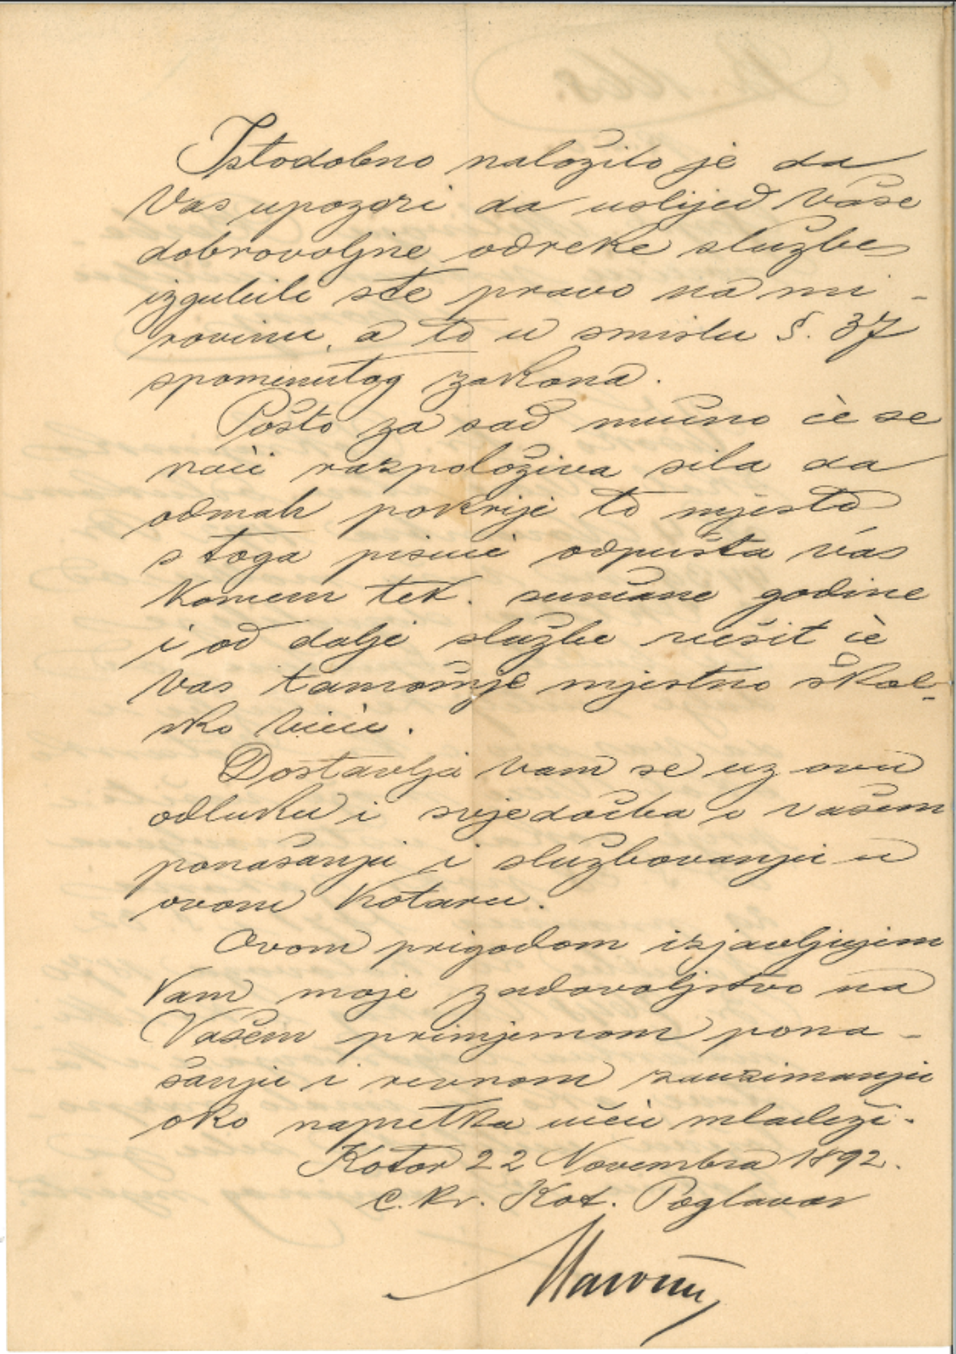 Istodobno naložilo je da
Vas upozori da uslijed Vaše
dobrovoljne odreke službe
izgubili ste pravo na mi-
rovinu, a to u smislu §. 37
spomenutog zakona.
Pošto za sad mučno će se
naći razpoloživa sila da
odmah pokrije to mjesto
s toga pisući odpušta vas
Koncem tek. sunčane godine
i od dalje službe riešit će
Vas tamošnje mjestno škol-
sko Vieće.
Dostavlja Vam se uz ovu
odluku i svjedočba o vašem
ponašanju i službovanju u
ovom Kotaru.
Ovom prigodom izjavljujem
Vam moje zadovoljstvo na
Vašem primjernom pona-
šanju i revnom zauzimanju
oko napretka učeće mladeži.
Kotor 22 Novembra 1892.
C. kr. Kot. Poglavar